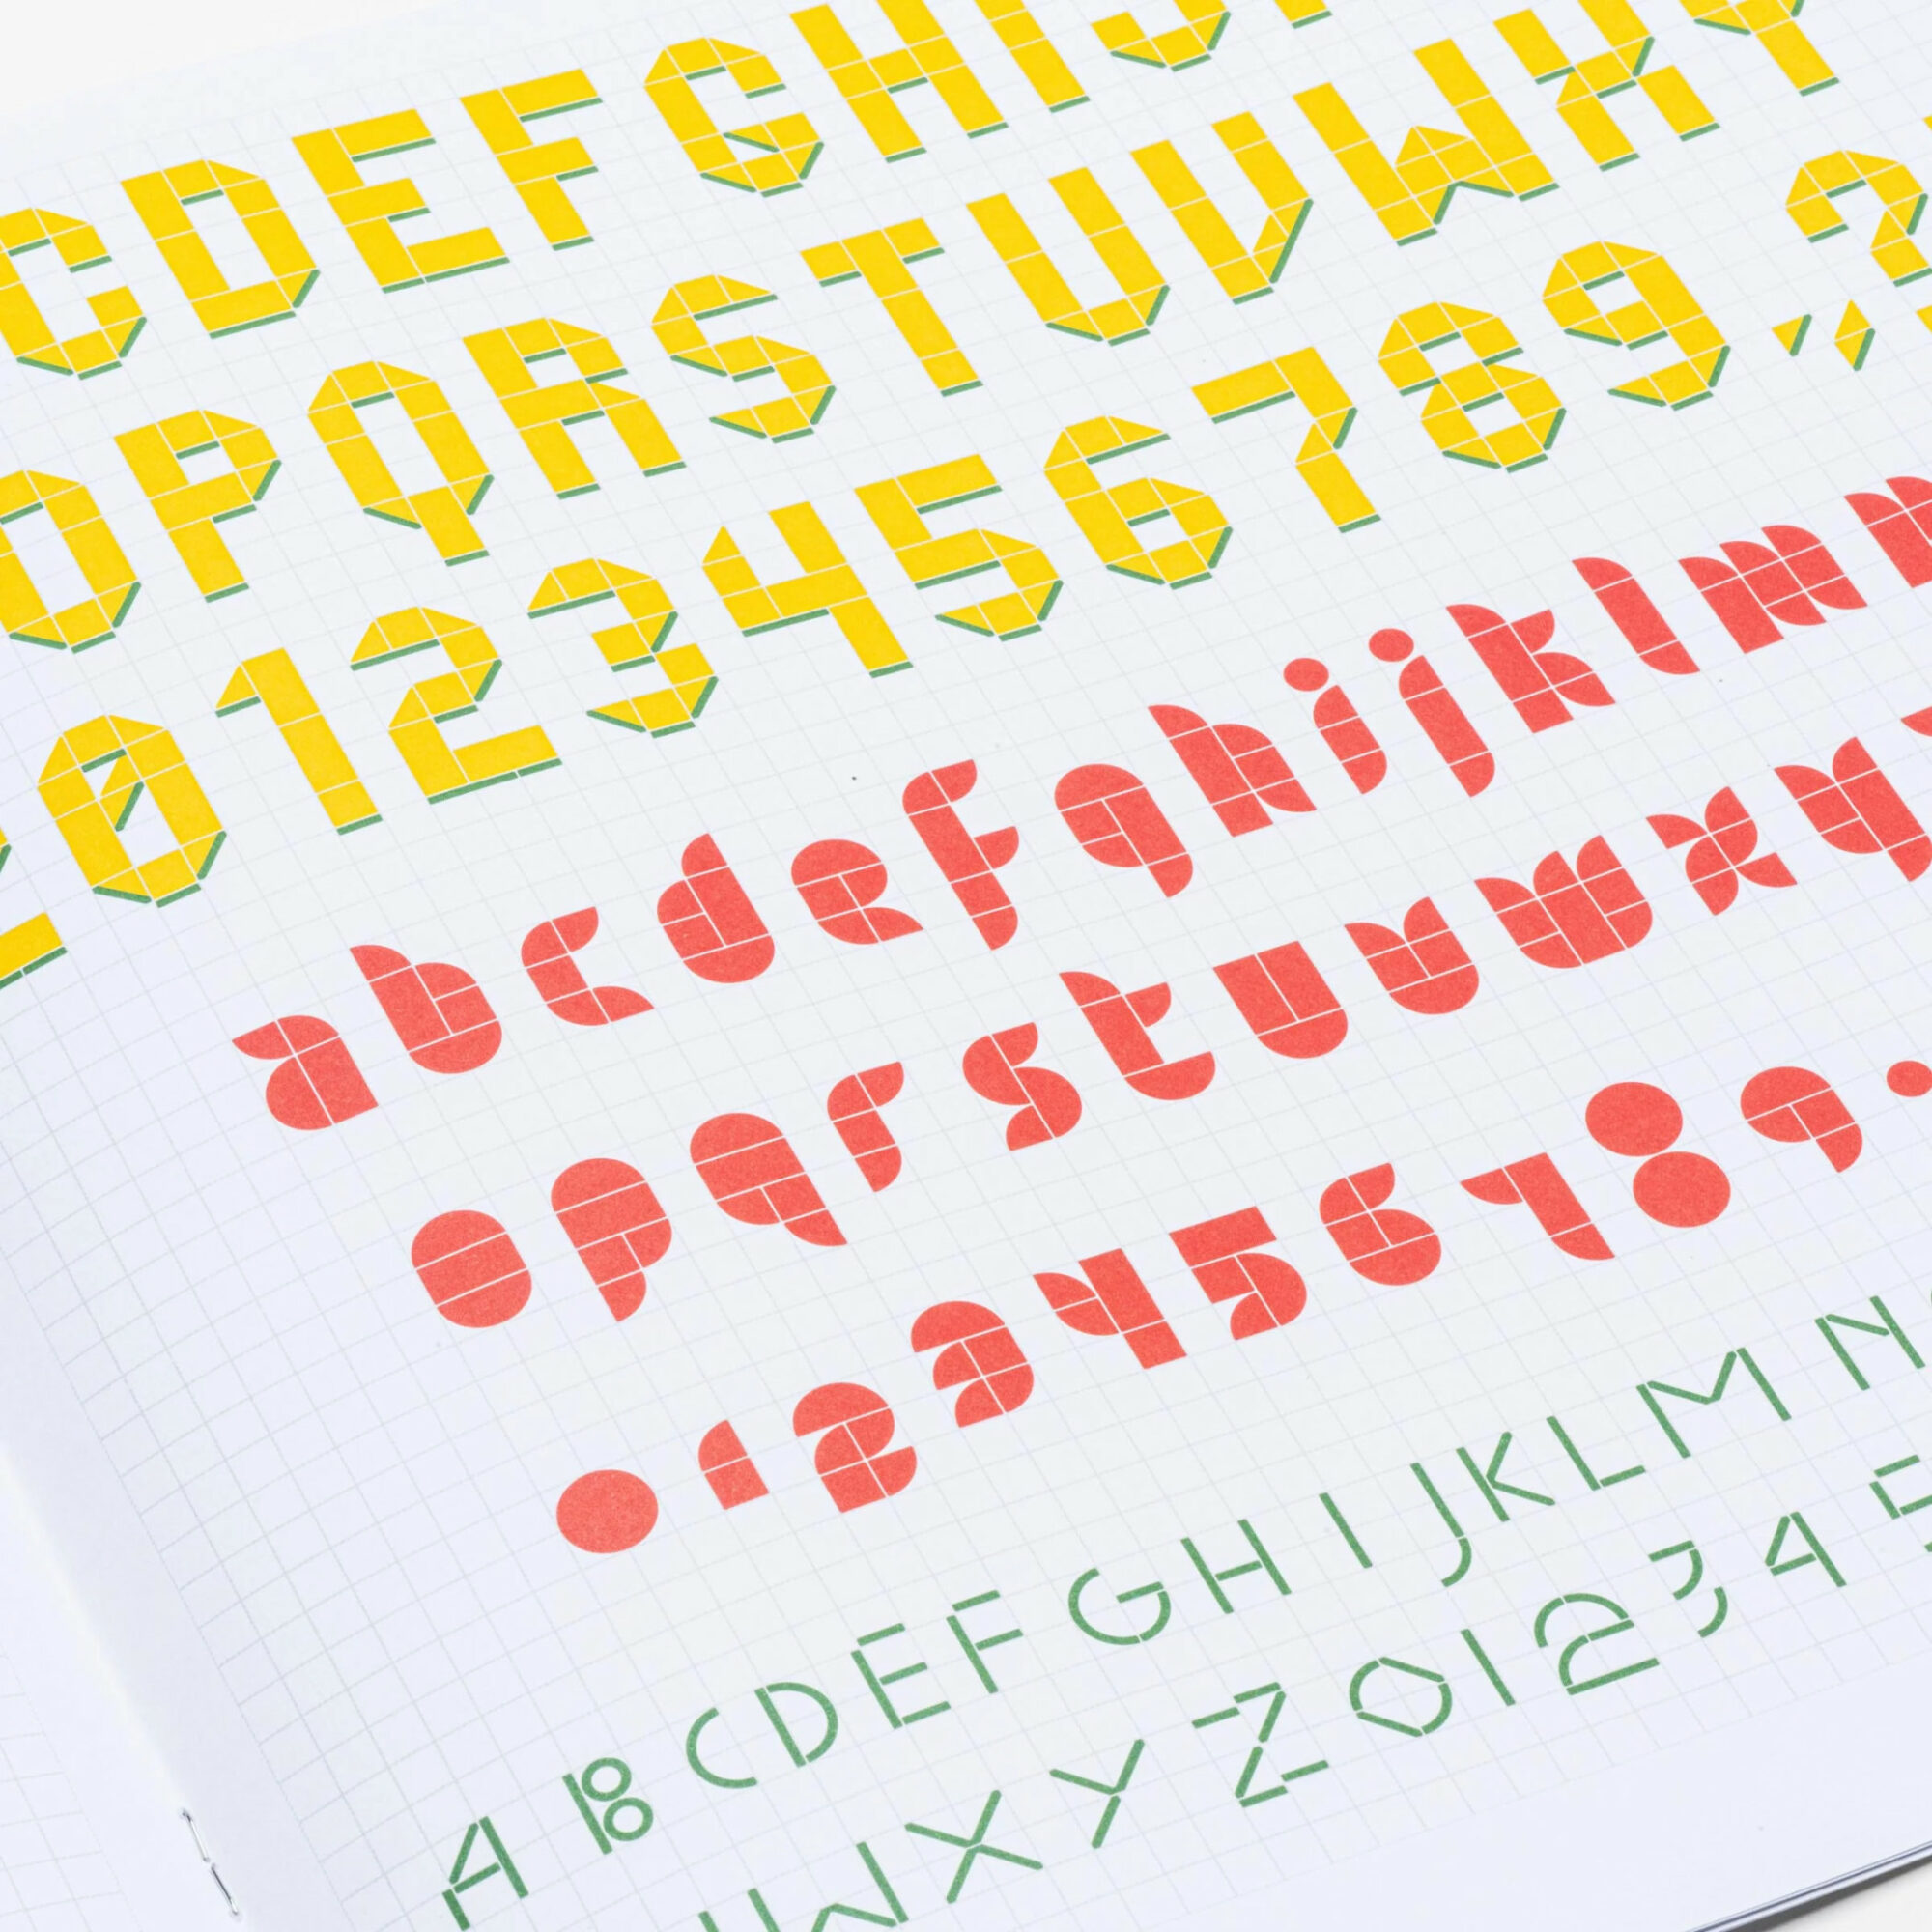 CDEFGHIJ
OPQRSTUVWXY
0123456789
abcdefghijklmn
opqrstuvwxy
0123456789.
ABCDEFGHIJKLMN
WXYZ01234